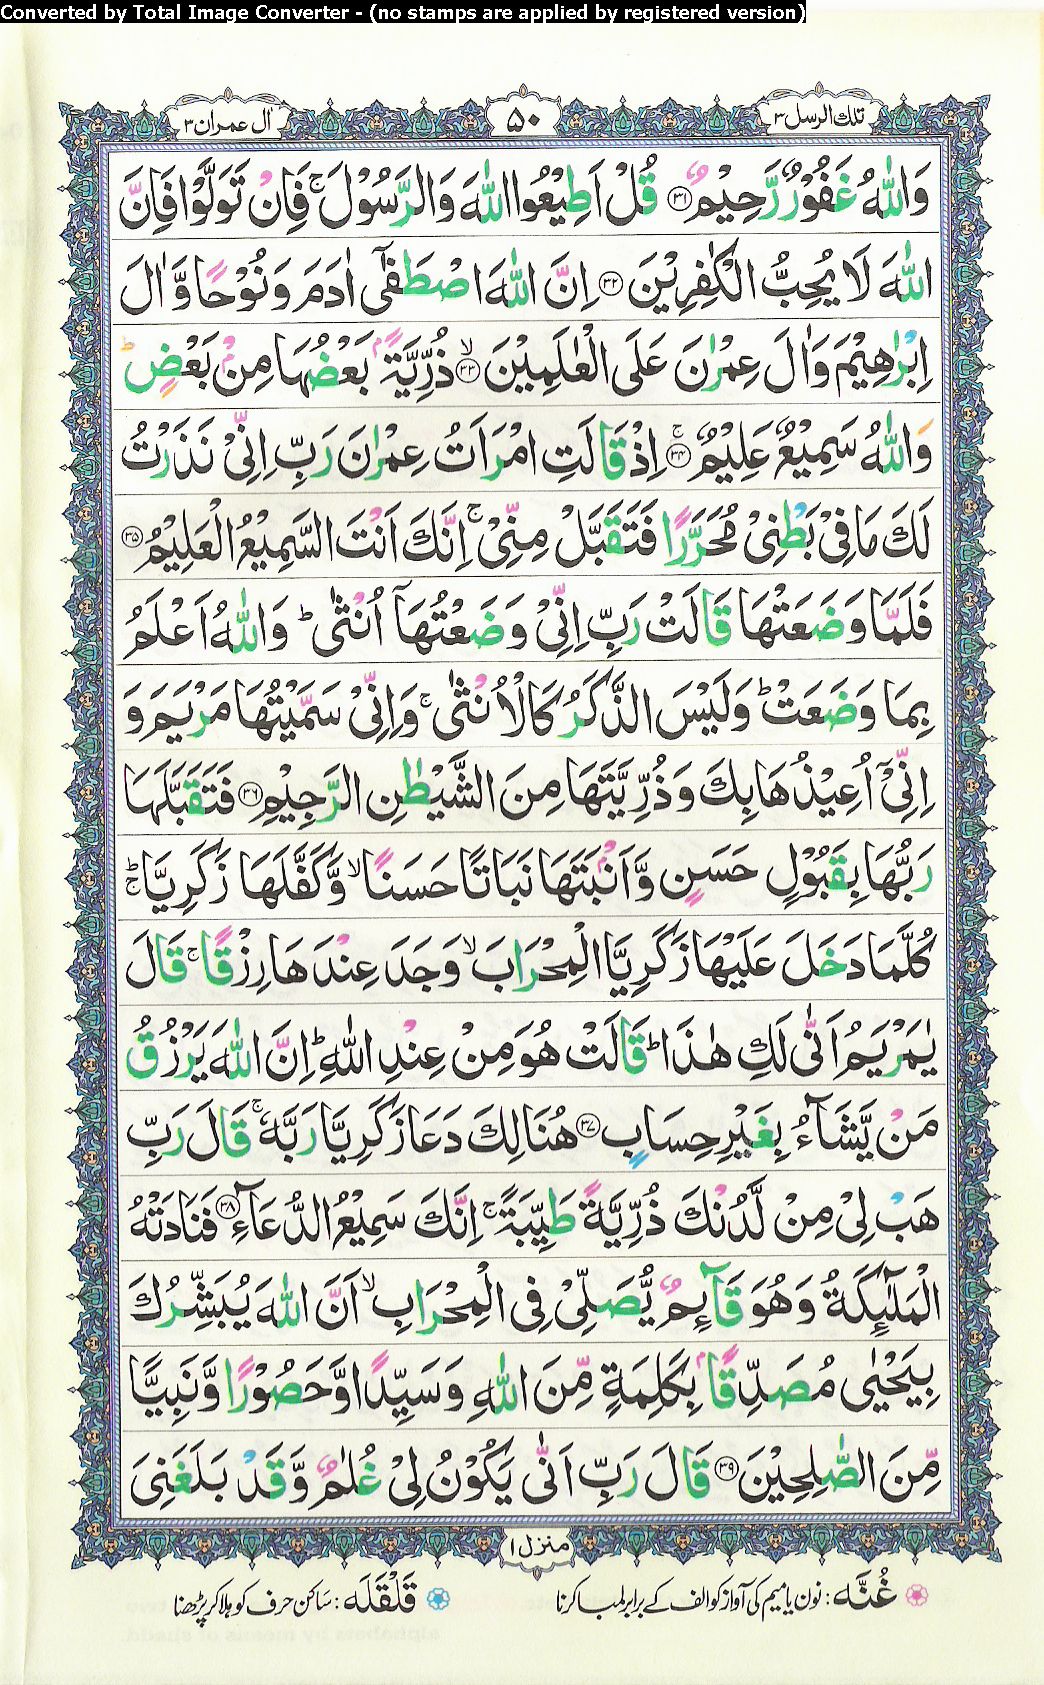 Converted by Total Image Converter - (no stamps are applied by registered version)
تلك الرسل ۳
۵۰
اٰل عمران ۳
وَاللّٰهُ غَفُوْرٌ رَّحِيْمٌ ﴿۳۱﴾ قُلْ اَطِيْعُوا اللّٰهَ وَالرَّسُوْلَ ۚ فَاِنْ تَوَلَّوْا فَاِنَّ
اللّٰهَ لَا يُحِبُّ الْكٰفِرِيْنَ ﴿۳۲﴾ اِنَّ اللّٰهَ اصْطَفٰٓى اٰدَمَ وَنُوْحًا وَّاٰلَ
اِبْرٰهِيْمَ وَاٰلَ عِمْرٰنَ عَلَى الْعٰلَمِيْنَ ﴿۳۳﴾ ۙ ذُرِّيَّةًۢ بَعْضُهَا مِنْۢ بَعْضٍ ؕ
وَاللّٰهُ سَمِيْعٌ عَلِيْمٌ ﴿۳۴﴾ ۚ اِذْ قَالَتِ امْرَاَتُ عِمْرٰنَ رَبِّ اِنِّىْ نَذَرْتُ
لَكَ مَا فِىْ بَطْنِىْ مُحَرَّرًا فَتَقَبَّلْ مِنِّىْ ۚ اِنَّكَ اَنْتَ السَّمِيْعُ الْعَلِيْمُ ﴿۳۵﴾
فَلَمَّا وَضَعَتْهَا قَالَتْ رَبِّ اِنِّىْ وَضَعْتُهَاۤ اُنْثٰى ؕ وَاللّٰهُ اَعْلَمُ
بِمَا وَضَعَتْ ؕ وَلَيْسَ الذَّكَرُ كَالْاُنْثٰى ۚ وَاِنِّىْ سَمَّيْتُهَا مَرْيَمَ وَ
اِنِّىْۤ اُعِيْذُهَا بِكَ وَذُرِّيَّتَهَا مِنَ الشَّيْطٰنِ الرَّجِيْمِ ﴿۳۶﴾ فَتَقَبَّلَهَا
رَبُّهَا بِقَبُوْلٍ حَسَنٍ وَّاَنْۢبَتَهَا نَبَاتًا حَسَنًا ۙ وَّكَفَّلَهَا زَكَرِيَّا ؕۚ
كُلَّمَا دَخَلَ عَلَيْهَا زَكَرِيَّا الْمِحْرَابَ ۙ وَجَدَ عِنْدَهَا رِزْقًا ۚ قَالَ
يٰمَرْيَمُ اَنّٰى لَكِ هٰذَا ؕ قَالَتْ هُوَ مِنْ عِنْدِ اللّٰهِ ؕ اِنَّ اللّٰهَ يَرْزُقُ
مَنْ يَّشَآءُ بِغَيْرِ حِسَابٍ ﴿۳۷﴾ هُنَالِكَ دَعَا زَكَرِيَّا رَبَّهٗ ۚ قَالَ رَبِّ
هَبْ لِىْ مِنْ لَّدُنْكَ ذُرِّيَّةً طَيِّبَةً ۚ اِنَّكَ سَمِيْعُ الدُّعَآءِ ﴿۳۸﴾ فَنَادَتْهُ
الْمَلٰٓئِكَةُ وَهُوَ قَآئِمٌ يُّصَلِّىْ فِى الْمِحْرَابِ ۙ اَنَّ اللّٰهَ يُبَشِّرُكَ
بِيَحْيٰى مُصَدِّقًۢا بِكَلِمَةٍ مِّنَ اللّٰهِ وَسَيِّدًا وَّحَصُوْرًا وَّنَبِيًّا
مِّنَ الصّٰلِحِيْنَ ﴿۳۹﴾ قَالَ رَبِّ اَنّٰى يَكُوْنُ لِىْ غُلٰمٌ وَّقَدْ بَلَغَنِىَ
منزل ۱
غُنَّه : نون یا میم کی آواز کو الف کے برابر لمبا کرنا
قَلْقَلَه : ساکن حرف کو ہلا کر پڑھنا